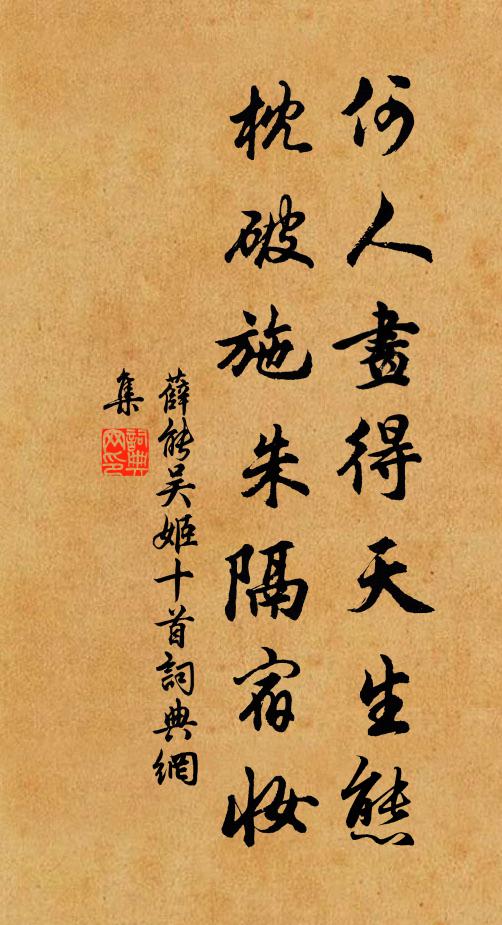 何人畫得天生態
枕破施朱隔宿妝
薛能吳姬十首詞典網
集
詞典網印